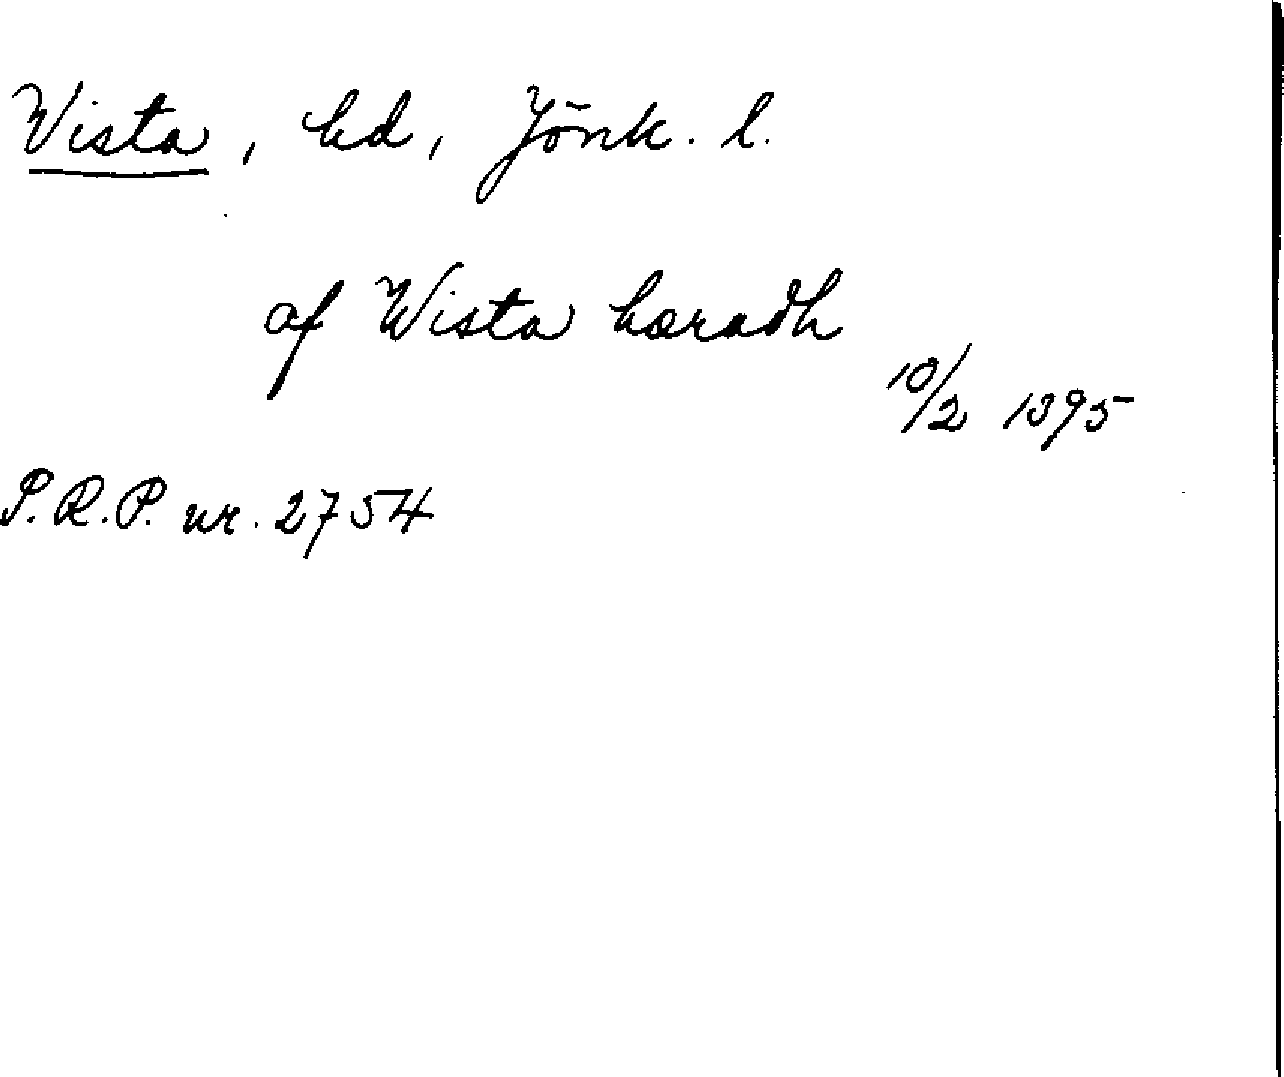 Vista, hd, Jönk. l.
af Wista hæradh
10/2 1395
P.R.P. nr. 2754